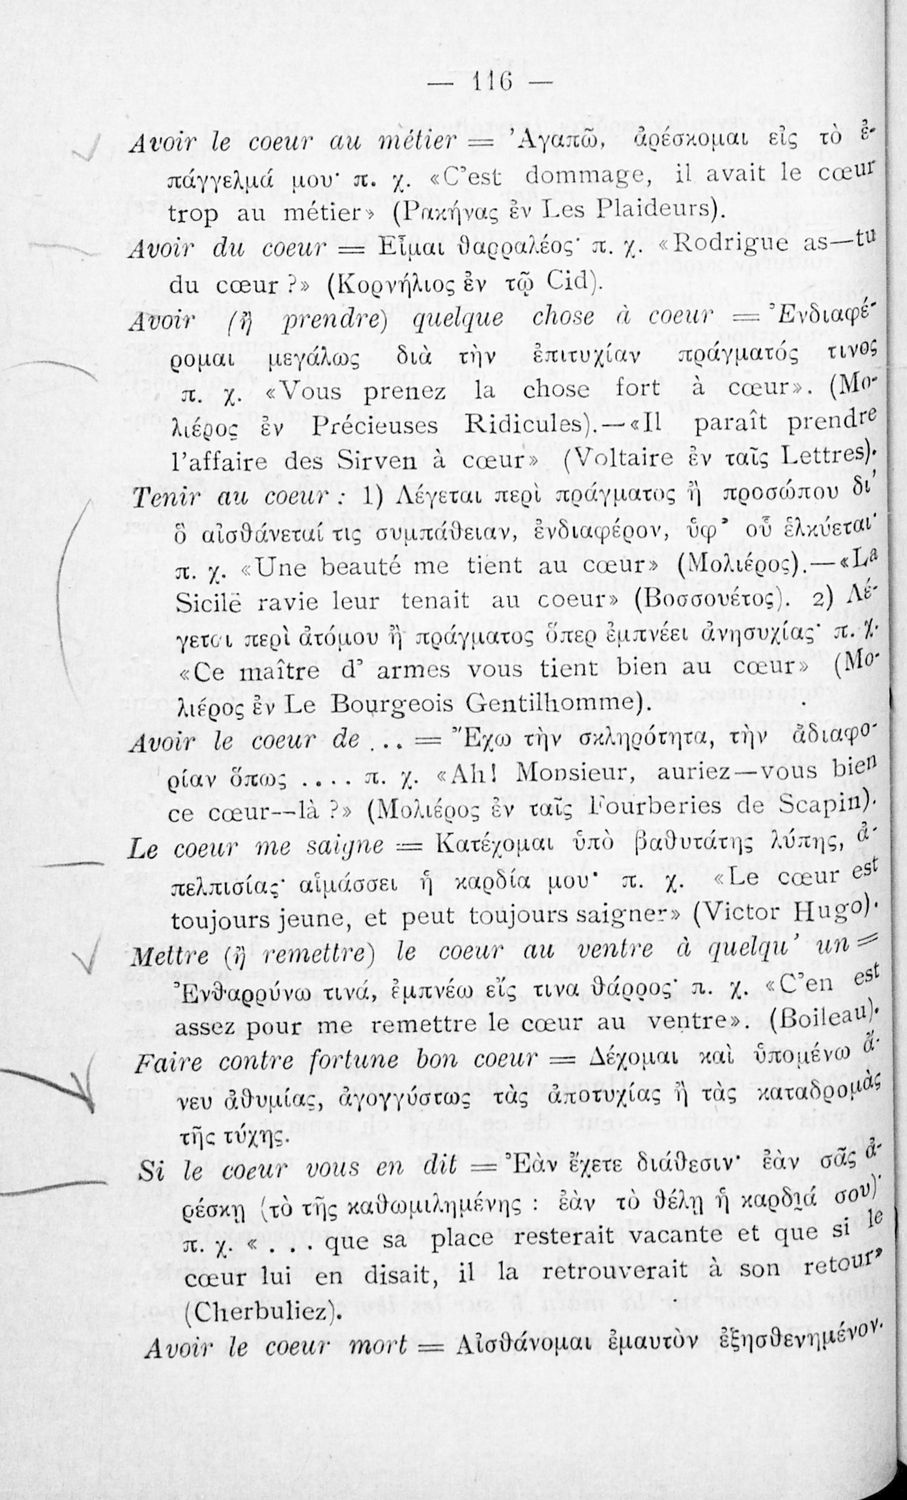 — 116 —
Avoir le coeur au métier = Ἀγαπῶ, ἀρέσκομαι εἰς τὸ ἐ-
πάγγελμά μου· π. χ. «C’est dommage, il avait le cœur
trop au métier» (Ρακήνας ἐν Les Plaideurs).
Avoir du coeur = Εἶμαι θαρραλέος· π. χ. «Rodrigue as—tu
du cœur ?» (Κορνήλιος ἐν τῷ Cid).
Avoir (ἢ prendre) quelque chose à coeur = Ἐνδιαφέ-
ρομαι μεγάλως διὰ τὴν ἐπιτυχίαν πράγματός τινος
π. χ. «Vous prenez la chose fort à cœur». (Μο-
λιέρος ἐν Précieuses Ridicules).—«Il paraît prendre
l’affaire des Sirven à cœur» (Voltaire ἐν ταῖς Lettres).
Tenir au coeur : 1) Λέγεται περὶ πράγματος ἢ προσώπου δι’
ὃ αἰσθάνεταί τις συμπάθειαν, ἐνδιαφέρον, ὑφ’ οὗ ἑλκύεται·
π. χ. «Une beauté me tient au cœur» (Μολιέρος).—«La
Sicile ravie leur tenait au coeur» (Βοσσουέτος). 2) Λέ-
γεται περὶ ἀτόμου ἢ πράγματος ὅπερ ἐμπνέει ἀνησυχίας· π. χ.
«Ce maître d’ armes vous tient bien au cœur» (Μο-
λιέρος ἐν Le Bourgeois Gentilhomme).
Avoir le coeur de ... = Ἔχω τὴν σκληρότητα, τὴν ἀδιαφο-
ρίαν ὅπως .... π. χ. «Ah! Monsieur, auriez—vous bien
ce cœur—là ?» (Μολιέρος ἐν ταῖς Fourberies de Scapin).
Le coeur me saigne = Κατέχομαι ὑπὸ βαθυτάτης λύπης, ἀ-
πελπισίας· αἱμάσσει ἡ καρδία μου· π. χ. «Le cœur est
toujours jeune, et peut toujours saigner» (Victor Hugo).
Mettre (ἢ remettre) le coeur au ventre à quelqu’ un =
Ἐνθαρρύνω τινά, ἐμπνέω εἴς τινα θάρρος· π. χ. «C’en est
assez pour me remettre le cœur au ventre». (Boileau).
Faire contre fortune bon coeur = Δέχομαι καὶ ὑπομένω ἄ-
νευ ἀθυμίας, ἀγογγύστως τὰς ἀποτυχίας ἢ τὰς καταδρομὰς
τῆς τύχης.
Si le coeur vous en dit = Ἐὰν ἔχετε διάθεσιν· ἐὰν σᾶς ἀ-
ρέσκῃ (τὸ τῆς καθωμιλημένης : ἐὰν τὸ θέλῃ ἡ καρδιά σου)·
π. χ. « . . . que sa place resterait vacante et que si le
cœur lui en disait, il la retrouverait à son retour»
(Cherbuliez).
Avoir le coeur mort = Αἰσθάνομαι ἐμαυτὸν ἐξησθενημένον.